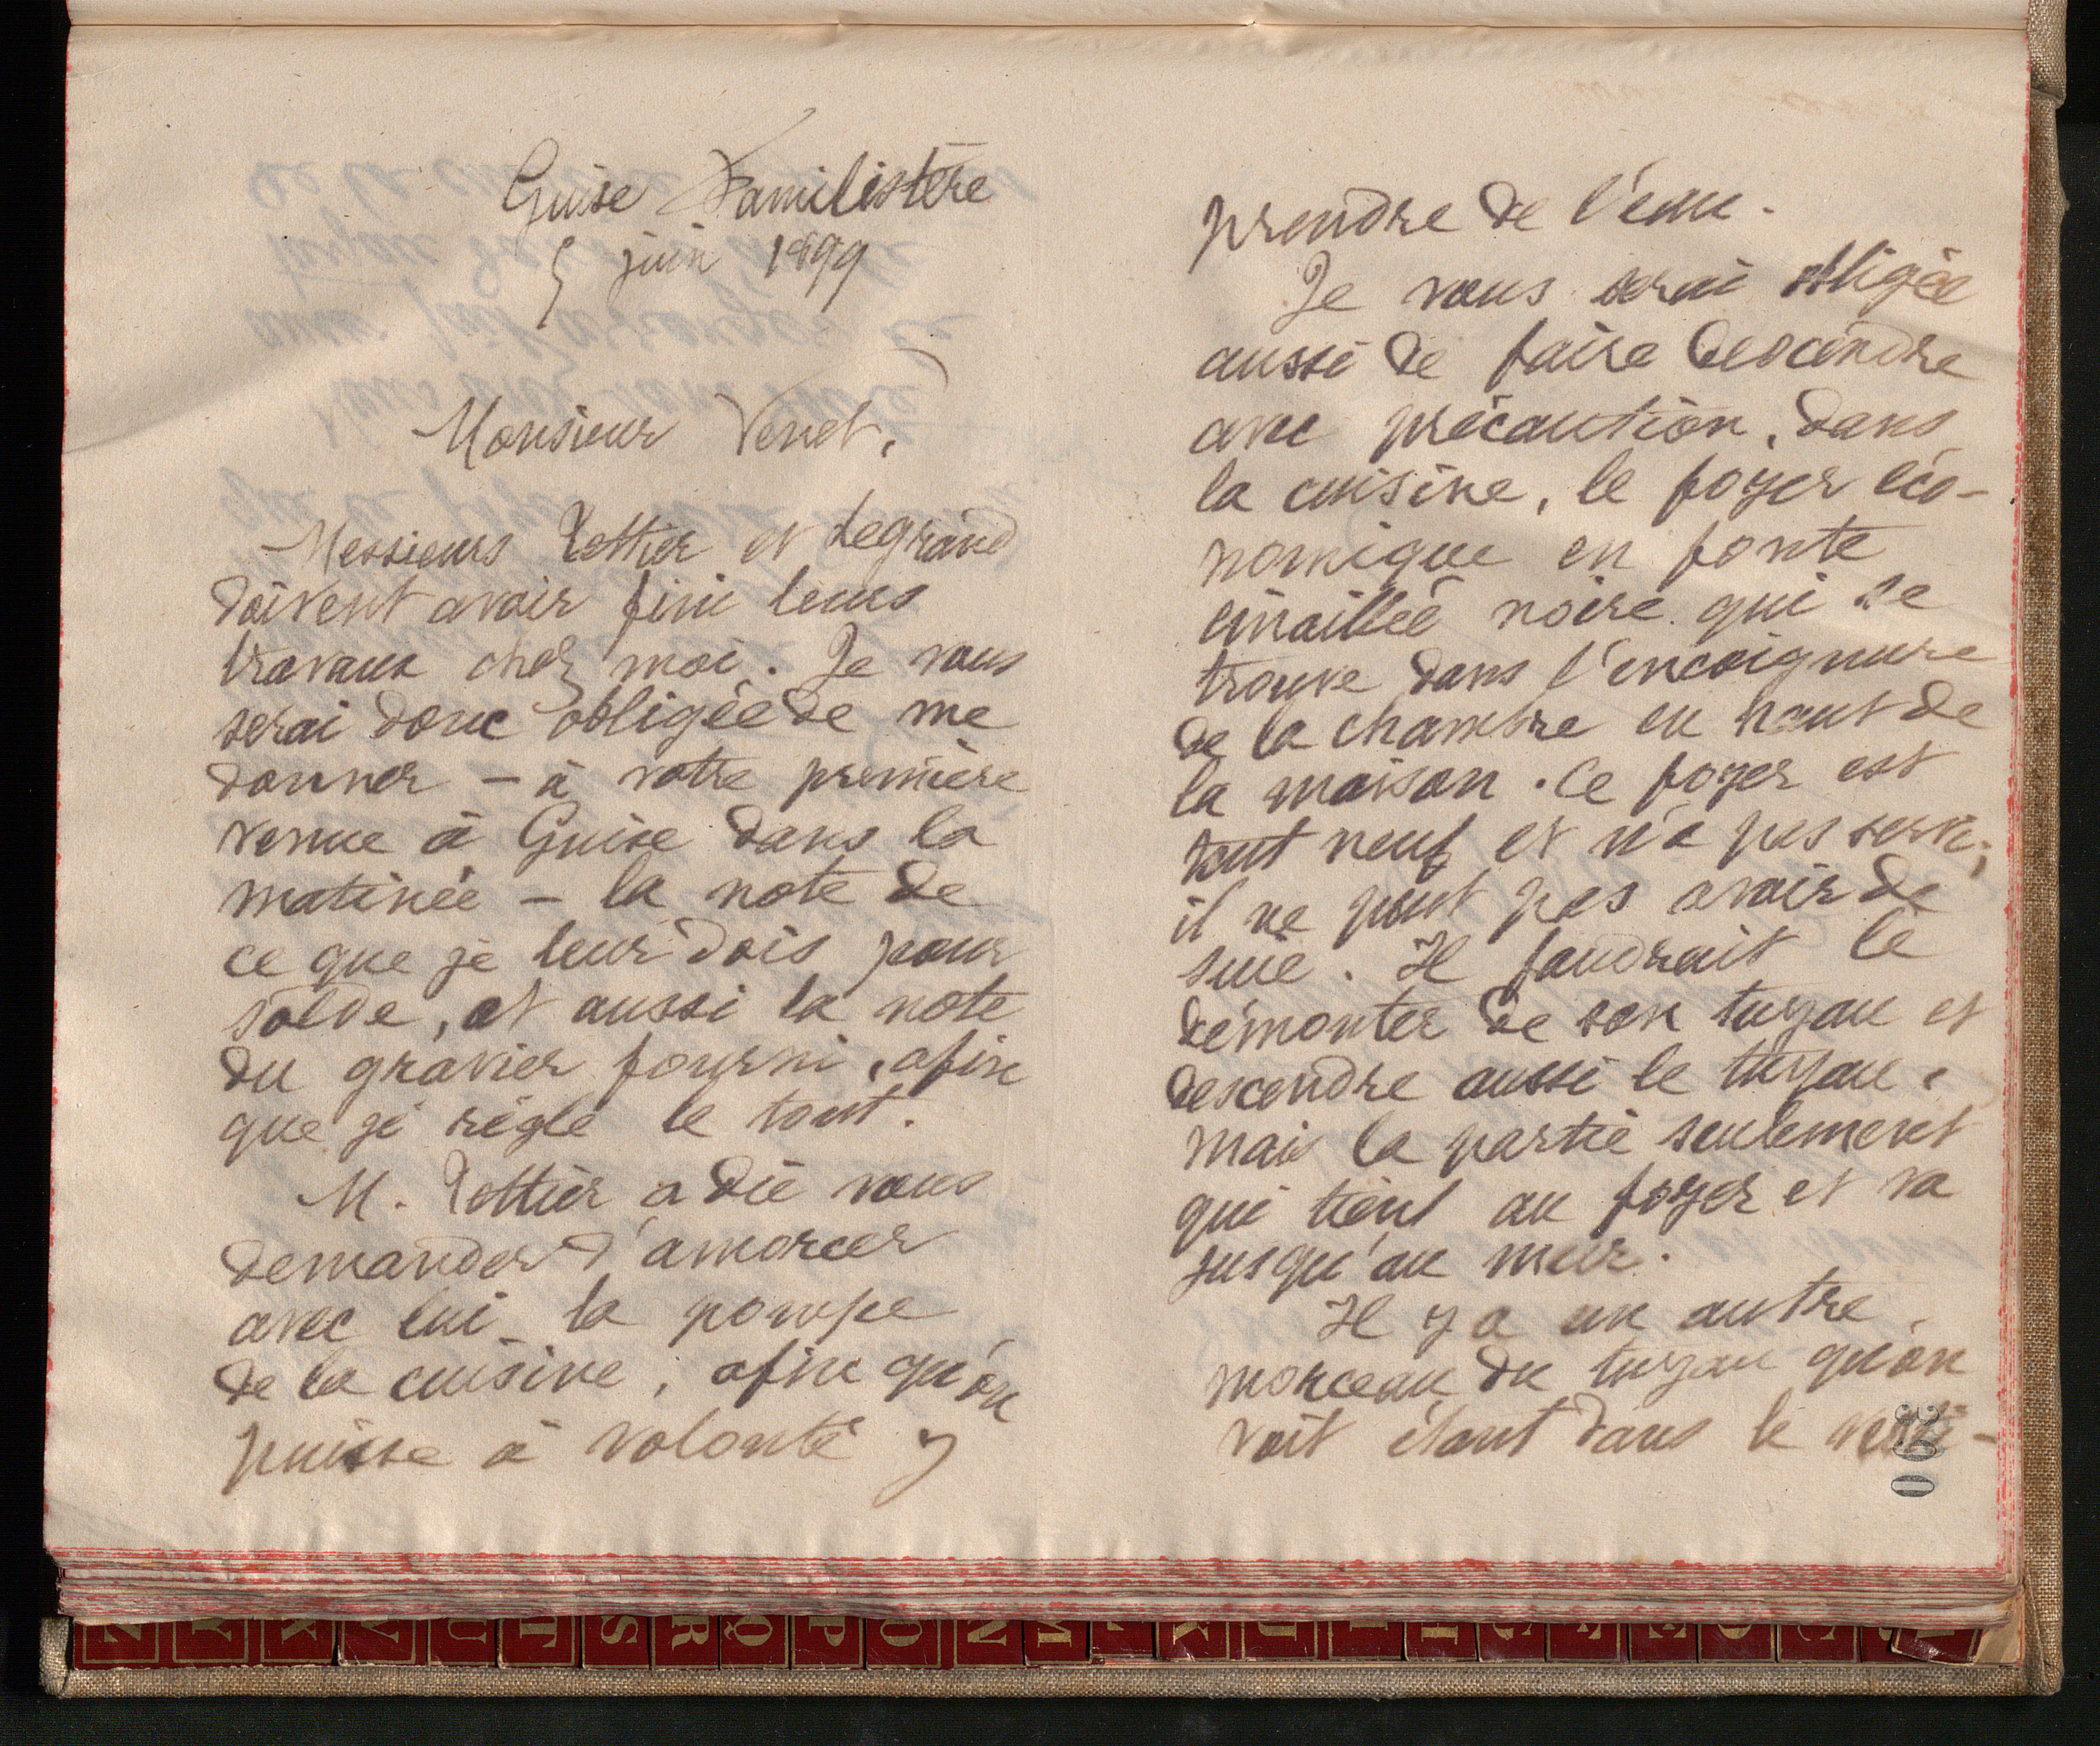 Guise Familistère
5 juin 1899
Monsieur Venet,
Messieurs Pottier et Legrand
doivent avoir fini leurs
travaux chez moi. Je vous
serai donc obligée de me
donner — à votre première
venue à Guise dans la
matinée — la note de
ce que je leur dois pour
solde, et aussi la note
du gravier fourni, afin
que je règle le tout.
M. Pottier a dû vous
demander d'amorcer
avec lui la pompe
de la cuisine, afin qu'on
puisse à volonté y
prendre de l'eau.
Je vous serai obligée
aussi de faire descendre
avec précaution, dans
la cuisine, le foyer éco-
nomique en fonte
émaillée noire qui se
trouve dans l'encoignure
de la chambre en haut de
la maison. Ce foyer est
tout neuf et n'a pas servi;
il ne peut pas avoir de
suie. Il faudrait le
démonter de son tuyau et
descendre aussi le tuyau,
mais la partie seulement
qui tient au foyer et va
jusqu'au mur.
Il y a un autre
morceau du tuyau qu'on
voit étant dans le vesti-
390
Z Y X V U T S R Q P O N M L K J I H G F E D C B